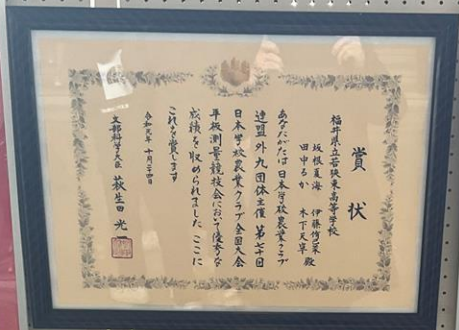 賞状
福井県立若狭東高等学校
坂根夏海 伊藤
田中るか 木下天卓 殿
あなたがたは日本学校農業クラブ
連盟外九団体主催第七十回
日本学校農業クラブ全国大会
平板測量競技会において優秀な
成績を収められました ここに
これを賞します
令和元年 十月二十四日
文部科学大臣 萩生田光一